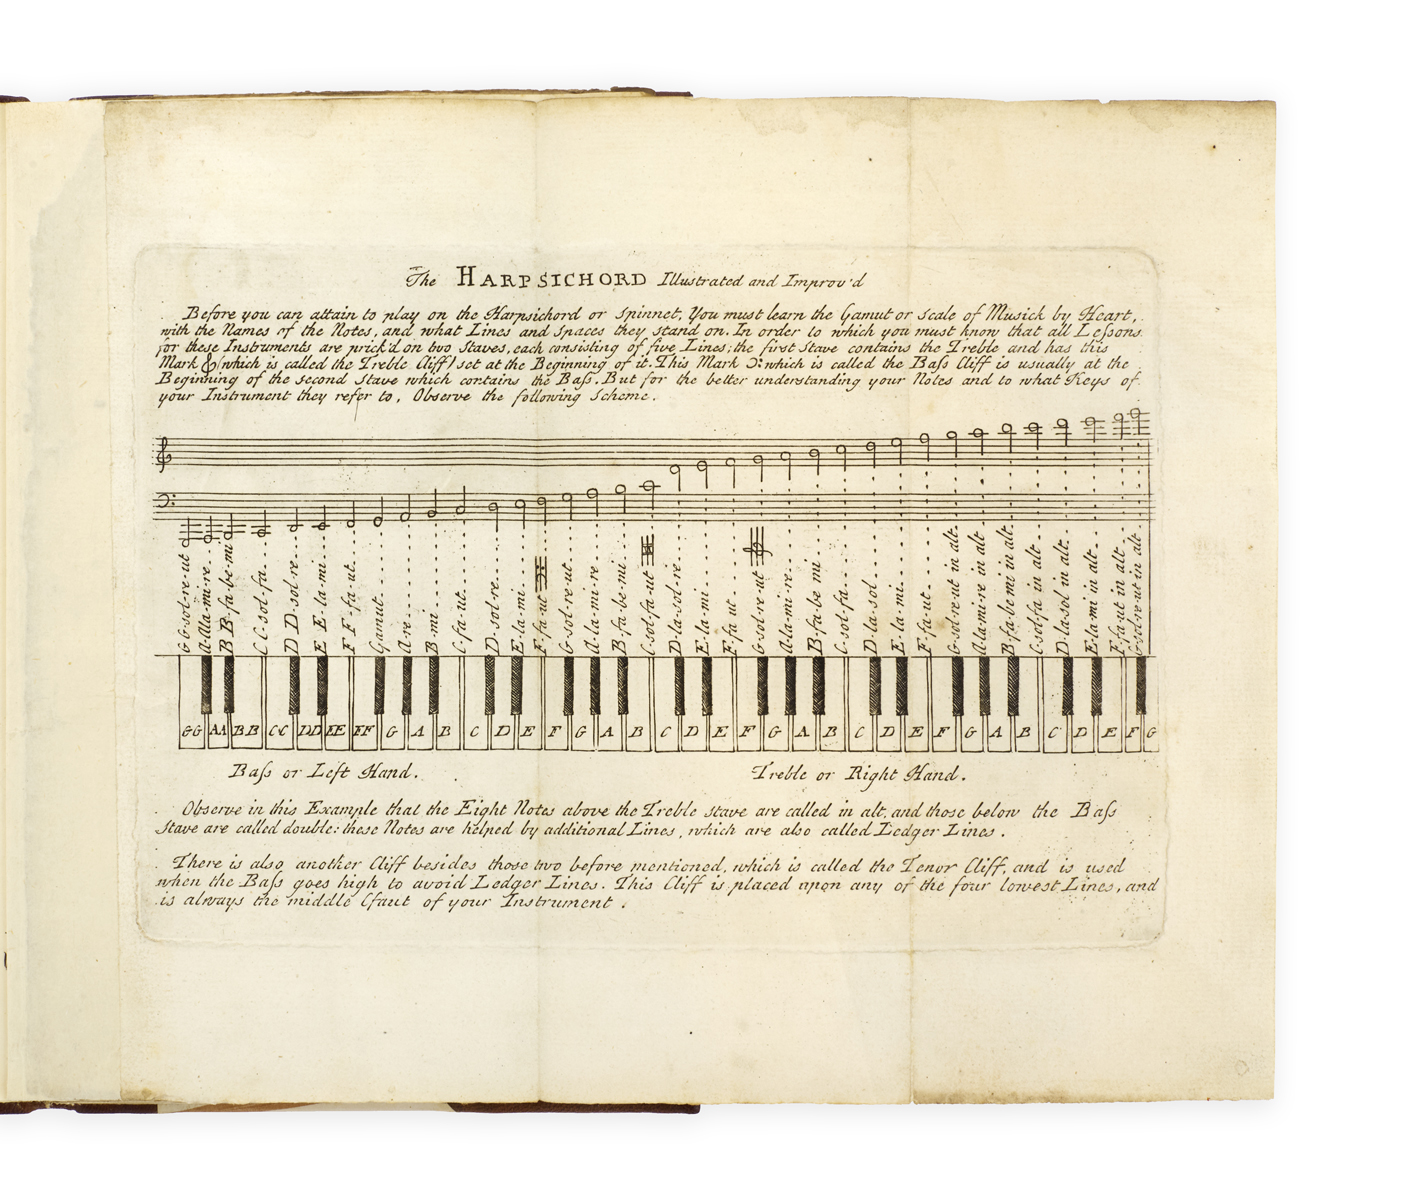 The HARPSICHORD Illustrated and Improv'd
Before you can attain to play on the Harpsichord or Spinnet, You must learn the Gamut or Scale of Musick by Heart,
with the Names of the Notes, and what Lines and Spaces they stand on. In order to which you must know that all Leſsons
for these Instruments are prick'd on two Staves, each consisting of five Lines; the first Stave contains the Treble and has this
Mark (which is called the Treble Cliff) set at the Beginning of it. This Mark which is called the Baſs Cliff is usually at the
Beginning of the second Stave which contains the Baſs. But for the better understanding your Notes and to what Keys of
your Instrument they refer to, Observe the following Scheme.
G G-sol-re-ut
A-Ala-mi-re
B B-fa-be-mi
C C-sol-fa
D D-sol-re
E E-la-mi
F F-fa-ut
Gamut
A-re
B-mi
C-fa-ut
D-sol-re
E-la-mi
F-fa-ut
G-sol-re-ut
A-la-mi-re
B-fa-be-mi
C-sol-fa-ut
D-la-sol-re
E-la-mi
F-fa-ut
G-sol-re-ut
A-la-mi-re
B-fa-be-mi
C-sol-fa
D-la-sol
E-la-mi
F-fa-ut
G-sol-re-ut in alt
A-la-mi-re in alt
B-fa-be-mi in alt
C-sol-fa in alt
D-la-sol in alt
E-la-mi in alt
F-fa-ut in alt
G-sol-re-ut in alt
GG AA BB CC DD EE FF G A B C D E F G A B C D E F G A B C D E F G A B C D E F G
Baſs or Left Hand.
Treble or Right Hand.
Observe in this Example that the Eight Notes above the Treble Stave are called in alt, and those below the Baſs
Stave are called double: these Notes are helped by additional Lines, which are also called Ledger Lines.
There is also another Cliff besides those two before mentioned, which is called the Tenor Cliff, and is used
when the Baſs goes high to avoid Ledger Lines. This Cliff is placed upon any of the four lowest Lines, and
is always the middle Cfaut of your Instrument.